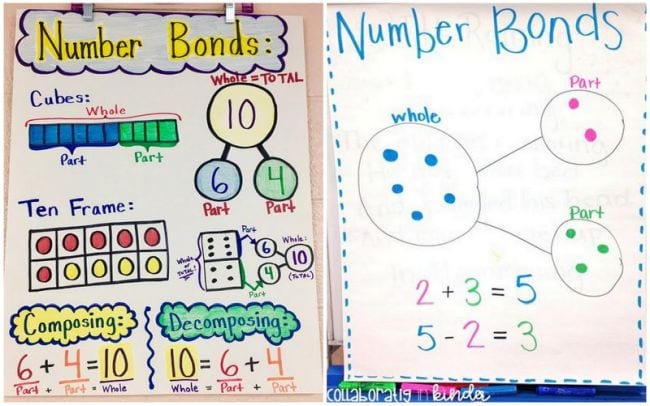 Number Bonds:
Whole = TOTAL
Cubes:
Whole
Part Part
10
6 4
Part Part
Ten Frame:
Part
Whole or TOTAL:
6
4
Whole:
10
(TOTAL)
Part
Composing:
6 + 4 = 10
Part + Part = Whole
Decomposing:
10 = 6 + 4
Whole = Part + Part
Number Bonds
Part
whole
Part
2 + 3 = 5
5 - 2 = 3